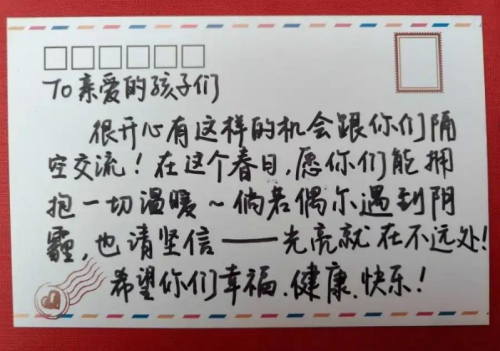 To亲爱的孩子们
很开心有这样的机会跟你们隔
空交流！在这个春日，愿你们能拥
抱一切温暖~倘若偶尔遇到阴
霾，也请坚信——光亮就在不远处！
希望你们幸福、健康、快乐！